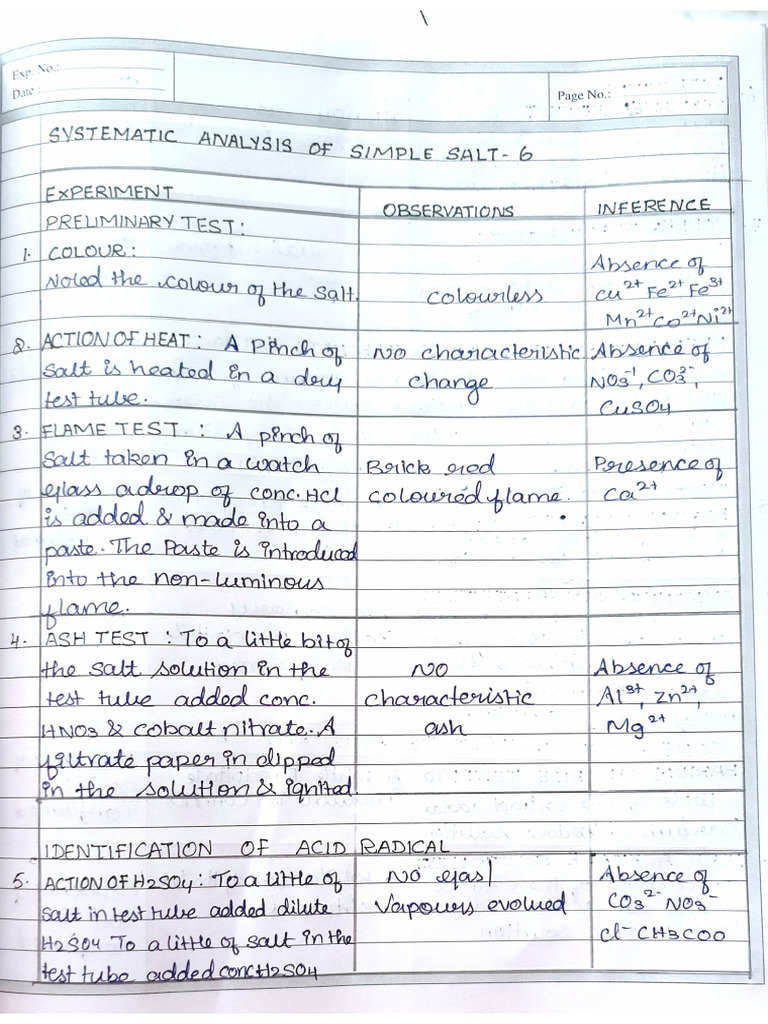 Exp. No.:
Date :
Page No.:
SYSTEMATIC ANALYSIS OF SIMPLE SALT - 6
EXPERIMENT OBSERVATIONS INFERENCE
PRELIMINARY TEST:
1. COLOUR:
Noted the colour of the salt. colourless Absence of
Cu²⁺ Fe²⁺ Fe³⁺
Mn²⁺ Co²⁺ Ni²⁺
2. ACTION OF HEAT : A Pinch of No characteristic Absence of
salt is heated in a dry change NO3⁻¹, CO3²⁻,
test tube. CuSO4
3. FLAME TEST : A pinch of
salt taken in a watch Brick red Presence of
glass a drop of conc. HCl coloured flame. Ca²⁺
is added & made into a
paste. The Paste is introduced
into the non-luminous
flame.
4. ASH TEST : To a little bit of
the salt solution in the No Absence of
test tube added conc. characteristic Al³⁺, Zn²⁺,
HNO3 & cobalt nitrate. A ash Mg²⁺
filtrate paper in dipped
in the solution & ignited.
IDENTIFICATION OF ACID RADICAL
5. ACTION OF H2SO4 : To a little of No gas/ Absence of
salt in test tube added dilute Vapours evolved CO3²⁻ NO3⁻
H2SO4 To a little of salt in the Cl⁻ CH3COO
test tube added conc H2SO4